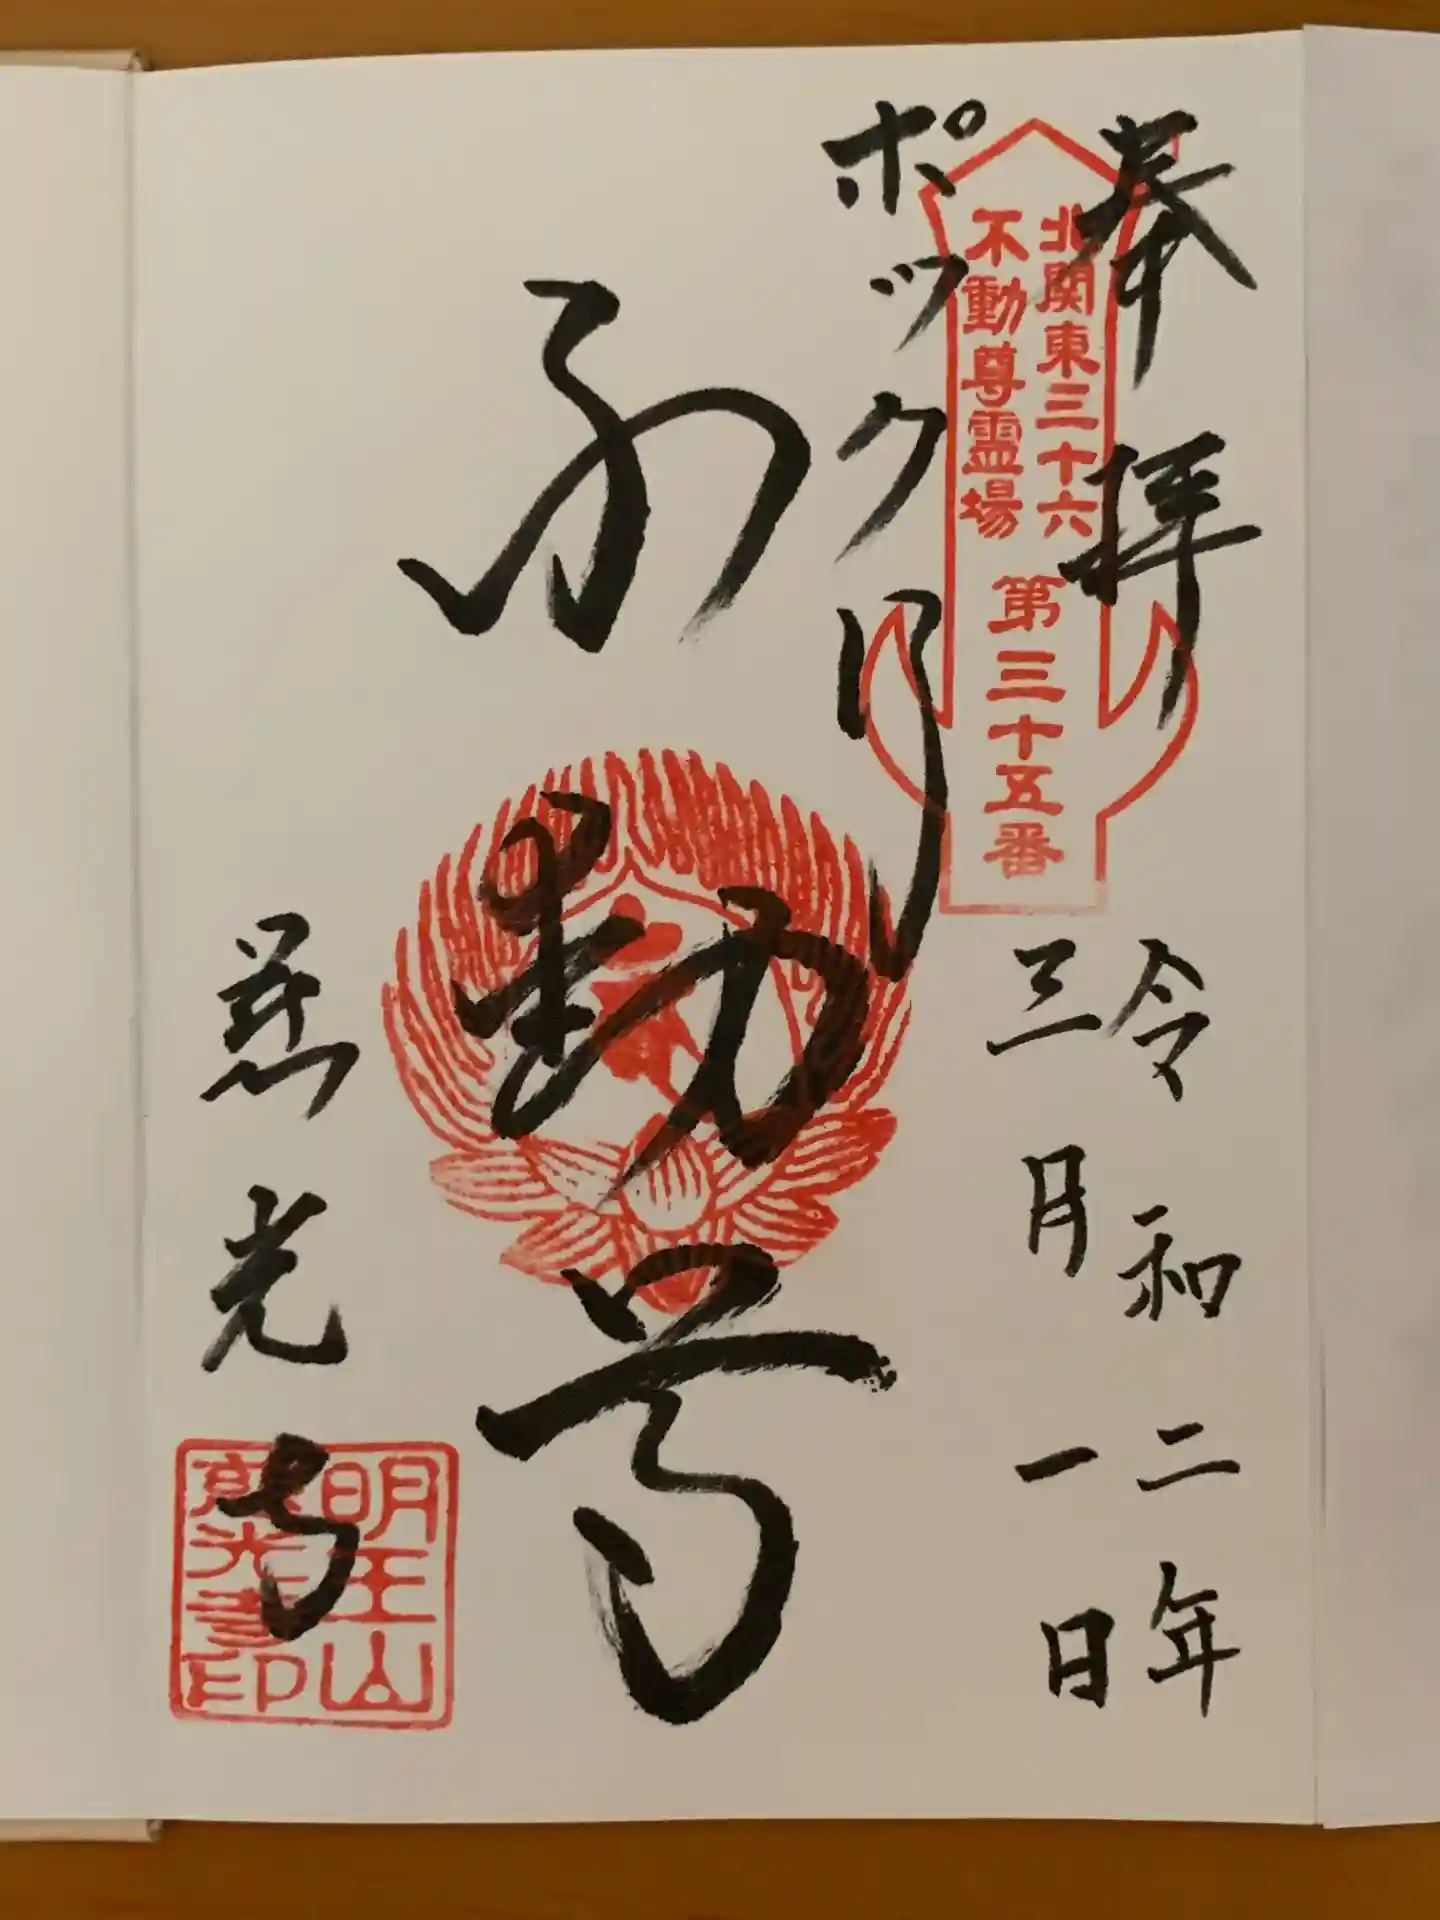 奉拝
北関東三十六
不動尊霊場
第三十五番
令和二年
三月一日
ポックリ
不動尊
慈光寺
明王山
慈光寺印